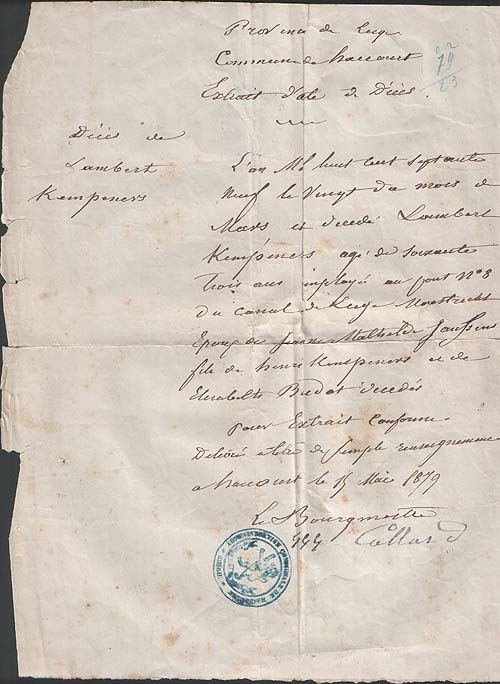 Province de Liège
Commune de haccourt
Extrait d'acte de Décès.
79
23
Décès de
Lambert
Kempeners
L'an Mil huit cent septante
neuf le Vingt du mois de
Mars est décédé Lambert
Kempeners agé de soixante
trois ans employé au pont N° 8
du canal de Liège Maestricht
Epoux de Jeanne Mathilde Janssen
fils de henri Kempeners et de
Elisabeth Budot décédés
Pour Extrait conforme
Délivré à titre de simple renseignement
a haccourt le 15 Mai 1879
Le Bourgmestre
Collard